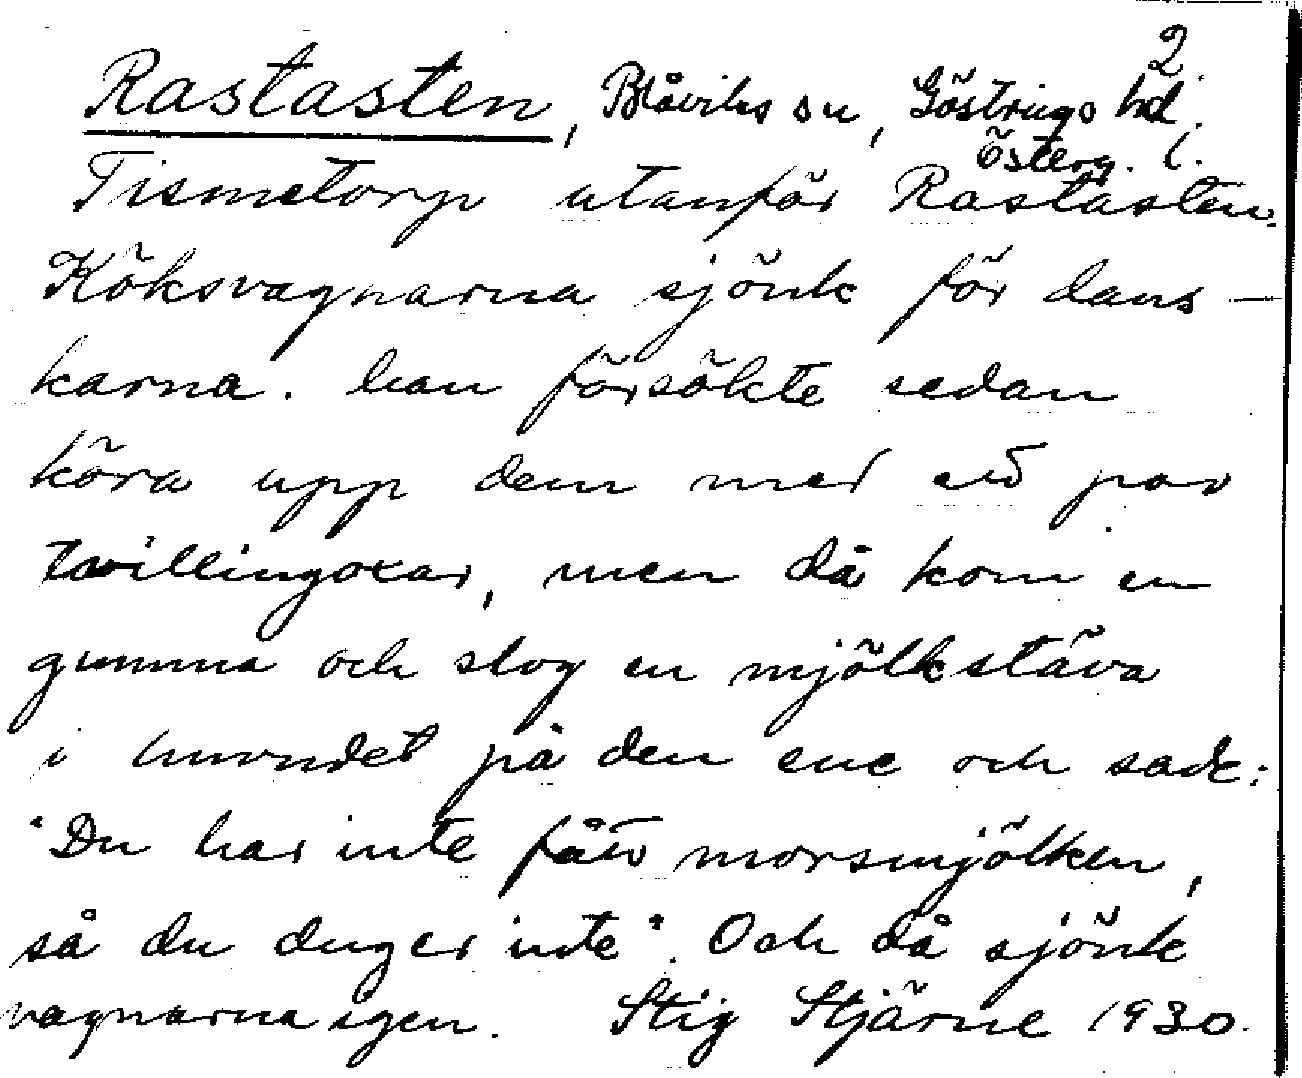 2
Rastasten, Blåviks sn, Göstrings hd.
Österg. l.
Tismetorp utanför Rastasten.
Köksvagnarna sjönk för dans-
karna. han försökte sedan
köra upp dem med ett par
tvillingoxar, men då kom en
gumma och slog en mjölkstäva
i huvudet på den ene och sade:
"Du har inte fått morsmjölken,
så du duger inte". Och då sjönk
vagnarna igen. Stig Stjärne 1930.